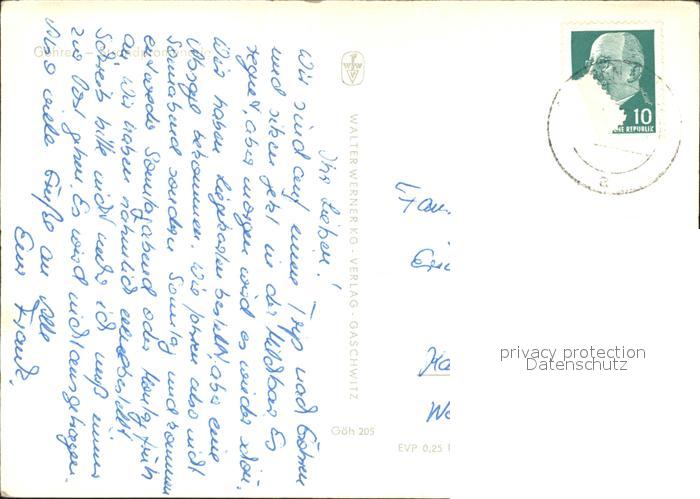 Göhren - Strandpromenade
Ihr Lieben!
Wir sind auf einem Trip nach Göhren
und sitzen jetzt in der Milchbar. Es
regnet, aber morgen wird es wieder schön.
Wir haben Liegekarten bestellt, aber eine
Absage bekommen. Wir fahren also nicht
Sonnabend sondern Sonntag und kommen
entweder Sonntagabend oder Montag früh
an. Wir haben nämlich
Schreib bitte nicht mehr, ich muß immer
zur Post gehen. Es wird nicht ausgetragen.
Also viele Grüße an Alle
Eure Frank.
WALTER WERNER KG - VERLAG - GASCHWITZ
Göh 205
EVP 0,25
10
REPUBLIK
Fam.
privacy protection
Datenschutz